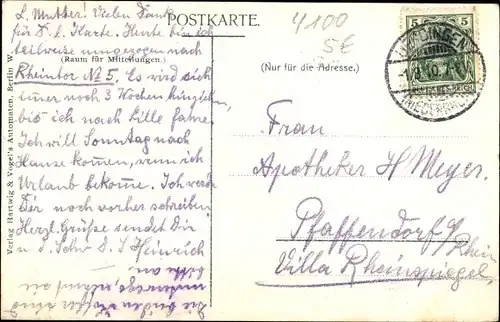 POSTKARTE.
4100
5€
L. Mutter! Vielen Dank
für D. l. Karte. Heute bin ich
teilweise umgezogen nach
(Raum für Mitteilungen.)
Rheintor No 5. Es wird sich
noch 3 Wochen hinziehen,
bis ich nach Lille fahre.
Ich will Sonntag nach
Hause komen, wenn ich
Urlaub bekome. Ich werde
Dir noch vorher schreiben.
Herzl. Grüße sendet Dir
Heinrich
Verlag Hartwig & Vogel's Automaten, Berlin W
(Nur für die Adresse.)
5
5
Frau
Apotheker H Meyer.
Pfaffendorf a/Rhein
Villa Rheinspiegel